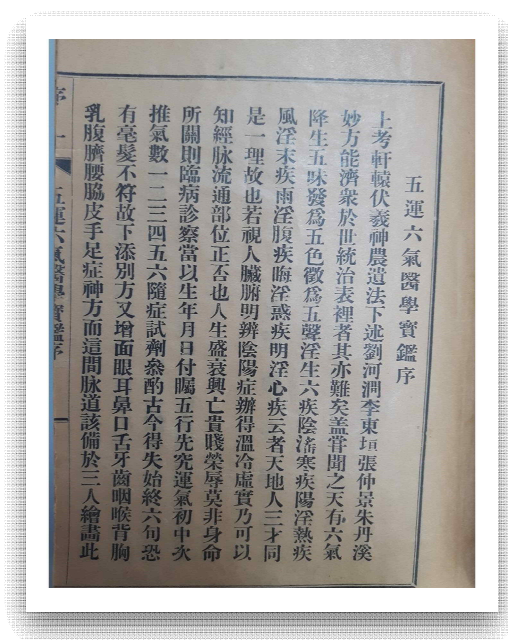 五運六氣醫學寶鑑序
上考軒轅伏羲神農遺法下述劉河澗李東垣張仲景朱丹溪
妙方能濟衆於世統治表裡者其亦難矣盖甞聞之天有六氣
降生五味發爲五色徵爲五聲淫生六疾陰淫寒疾陽淫熱疾
風淫末疾雨淫腹疾晦淫惑疾明淫心疾云者天地人三才同
是一理故也若視人臟腑明辨陰陽症辦得溫冷虛實乃可以
知經脉流通部位正否也人生盛衰興亡貴賤榮辱莫非身命
所關則臨病診察當以生年月日付囑五行先究運氣初中次
推氣數一二三四五六隨症試劑叅酌古今得失始終六句恐
有毫髮不符故下添別方又增面眼耳鼻口舌牙齒咽喉背胸
乳腹臍腰脇皮手足症神方而這間脉道該備於三人繪畵此
五運六氣醫學寶鑑序
序 一